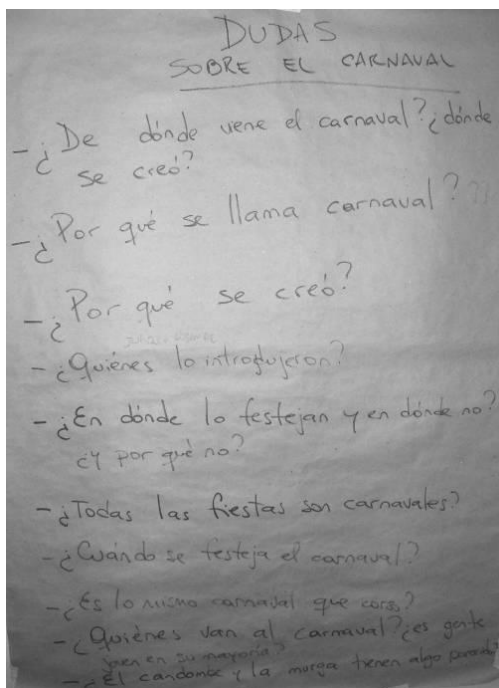 DUDAS
SOBRE EL CARNAVAL
-¿De dónde viene el carnaval?¿dónde
se creó?
-¿Por qué se llama carnaval???
-¿Por qué se creó?
-¿Quiénes lo introdujeron?
-¿En dónde lo festejan y en dónde no?
¿Y por qué no?
-¿Todas las fiestas son carnavales?
-¿Cuándo se festeja el carnaval?
-¿Es lo mismo carnaval que corso?
-¿Quiénes van al carnaval?¿es gente
joven en su mayoría?
-¿El candombe y la murga tienen algo parecido?